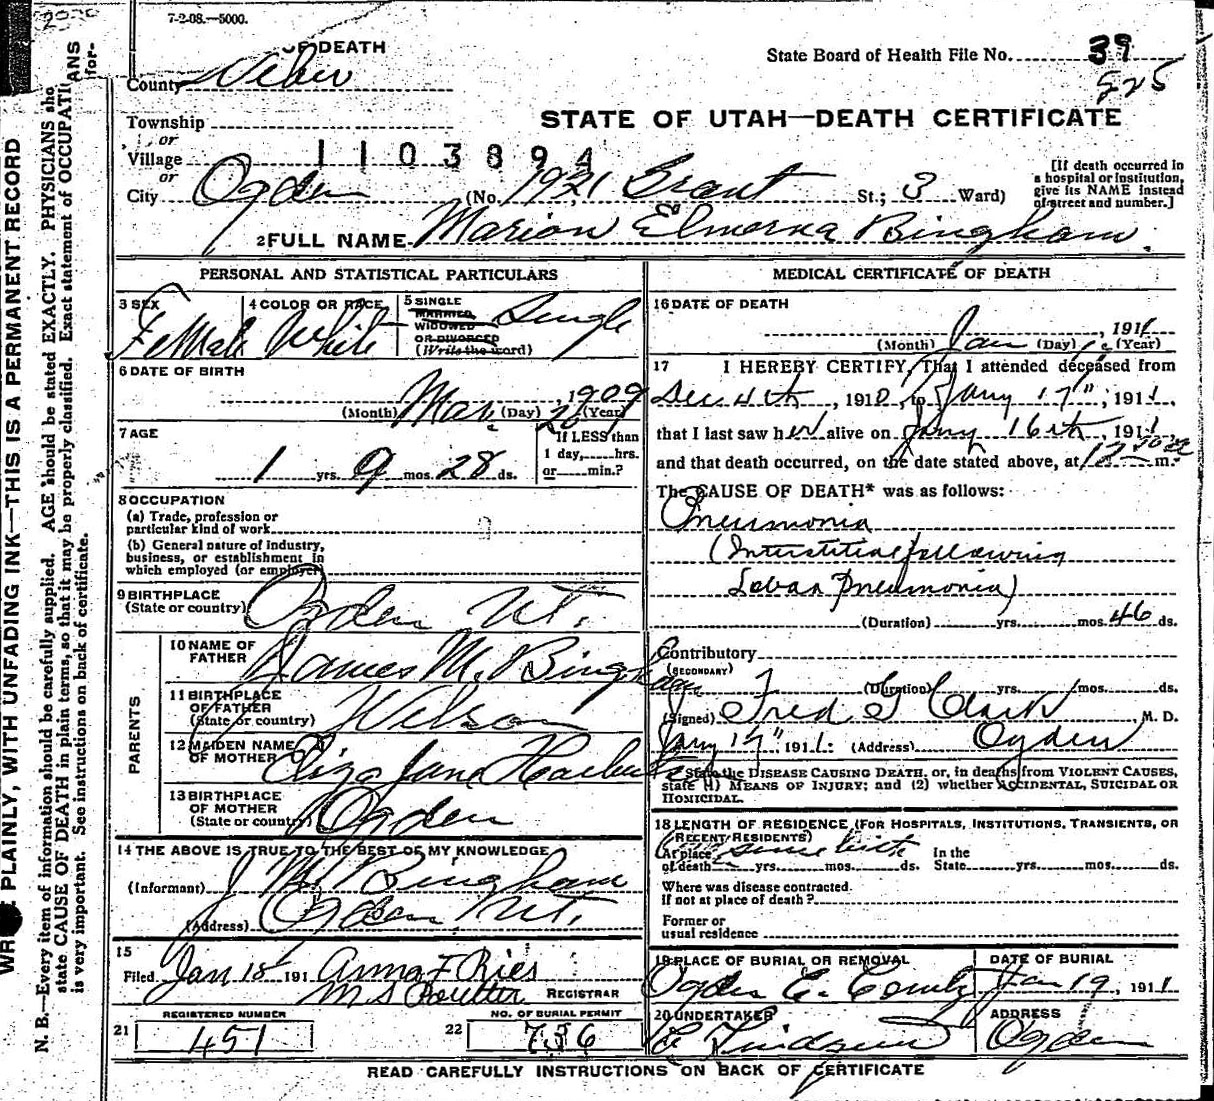 7-2-08.—5000.
OF DEATH
State Board of Health File No. 39
525
County Weber
STATE OF UTAH—DEATH CERTIFICATE
Township
or
Village 1103894
or
City Ogden (No. 1921 Grant St.; 3 Ward)
[If death occurred in a hospital or institution, give its NAME instead of street and number.]
2 FULL NAME Marion Elmerna Bingham.
PERSONAL AND STATISTICAL PARTICULARS
3 SEX Female
4 COLOR OR RACE White
5 SINGLE MARRIED, WIDOWED OR DIVORCED (Write the word) Single
6 DATE OF BIRTH
Mar. 20, 1909
(Month) (Day) (Year)
7 AGE
1 yrs. 9 mos. 28 ds.
If LESS than 1 day, hrs. or min.?
8 OCCUPATION
(a) Trade, profession or particular kind of work
(b) General nature of industry, business, or establishment in which employed (or employer)
9 BIRTHPLACE (State or country) Ogden Ut.
PARENTS
10 NAME OF FATHER James M. Bingham
11 BIRTHPLACE OF FATHER (State or country) Wilson
12 MAIDEN NAME OF MOTHER Eliza Jane
13 BIRTHPLACE OF MOTHER (State or country) Ogden
14 THE ABOVE IS TRUE TO THE BEST OF MY KNOWLEDGE
(Informant) J M Bingham
(Address) Ogden Ut.
15
Filed Jan 18 191 Anna F Ries
M S Poulter REGISTRAR
21 REGISTERED NUMBER 451
22 NO. OF BURIAL PERMIT 736
MEDICAL CERTIFICATE OF DEATH
16 DATE OF DEATH
Jan, 1911
(Month) (Day) (Year)
17 I HEREBY CERTIFY, That I attended deceased from
Dec 4th, 1910, to Jany 17", 1911,
that I last saw her alive on Jany 16th, 1911
and that death occurred, on the date stated above, at m.
The CAUSE OF DEATH* was as follows:
Pneumonia
(Interstitial following
Lobar Pneumonia)
(Duration) yrs. mos. 46 ds.
Contributory
(SECONDARY)
(Duration) yrs. mos. ds.
(Signed) Fred S Clark, M. D.
Jany 17" 1911. (Address) Ogden
* State the DISEASE CAUSING DEATH, or, in deaths from VIOLENT CAUSES, state (1) MEANS OF INJURY; and (2) whether ACCIDENTAL, SUICIDAL OR HOMICIDAL.
18 LENGTH OF RESIDENCE (FOR HOSPITALS, INSTITUTIONS, TRANSIENTS, OR RECENT RESIDENTS)
At place of death since birth yrs. mos. ds. In the State yrs. mos. ds.
Where was disease contracted, If not at place of death?
Former or usual residence
19 PLACE OF BURIAL OR REMOVAL Ogden C.
DATE OF BURIAL Jan 19, 1911
20 UNDERTAKER Lindquist
ADDRESS Ogden
READ CAREFULLY INSTRUCTIONS ON BACK OF CERTIFICATE
PLAINLY, WITH UNFADING INK—THIS IS A PERMANENT RECORD
N. B.—Every item of information should be carefully supplied. AGE should be stated EXACTLY. PHYSICIANS
state CAUSE OF DEATH in plain terms, so that it may be properly classified. Exact statement of
is very important. See instructions on back of certificate.